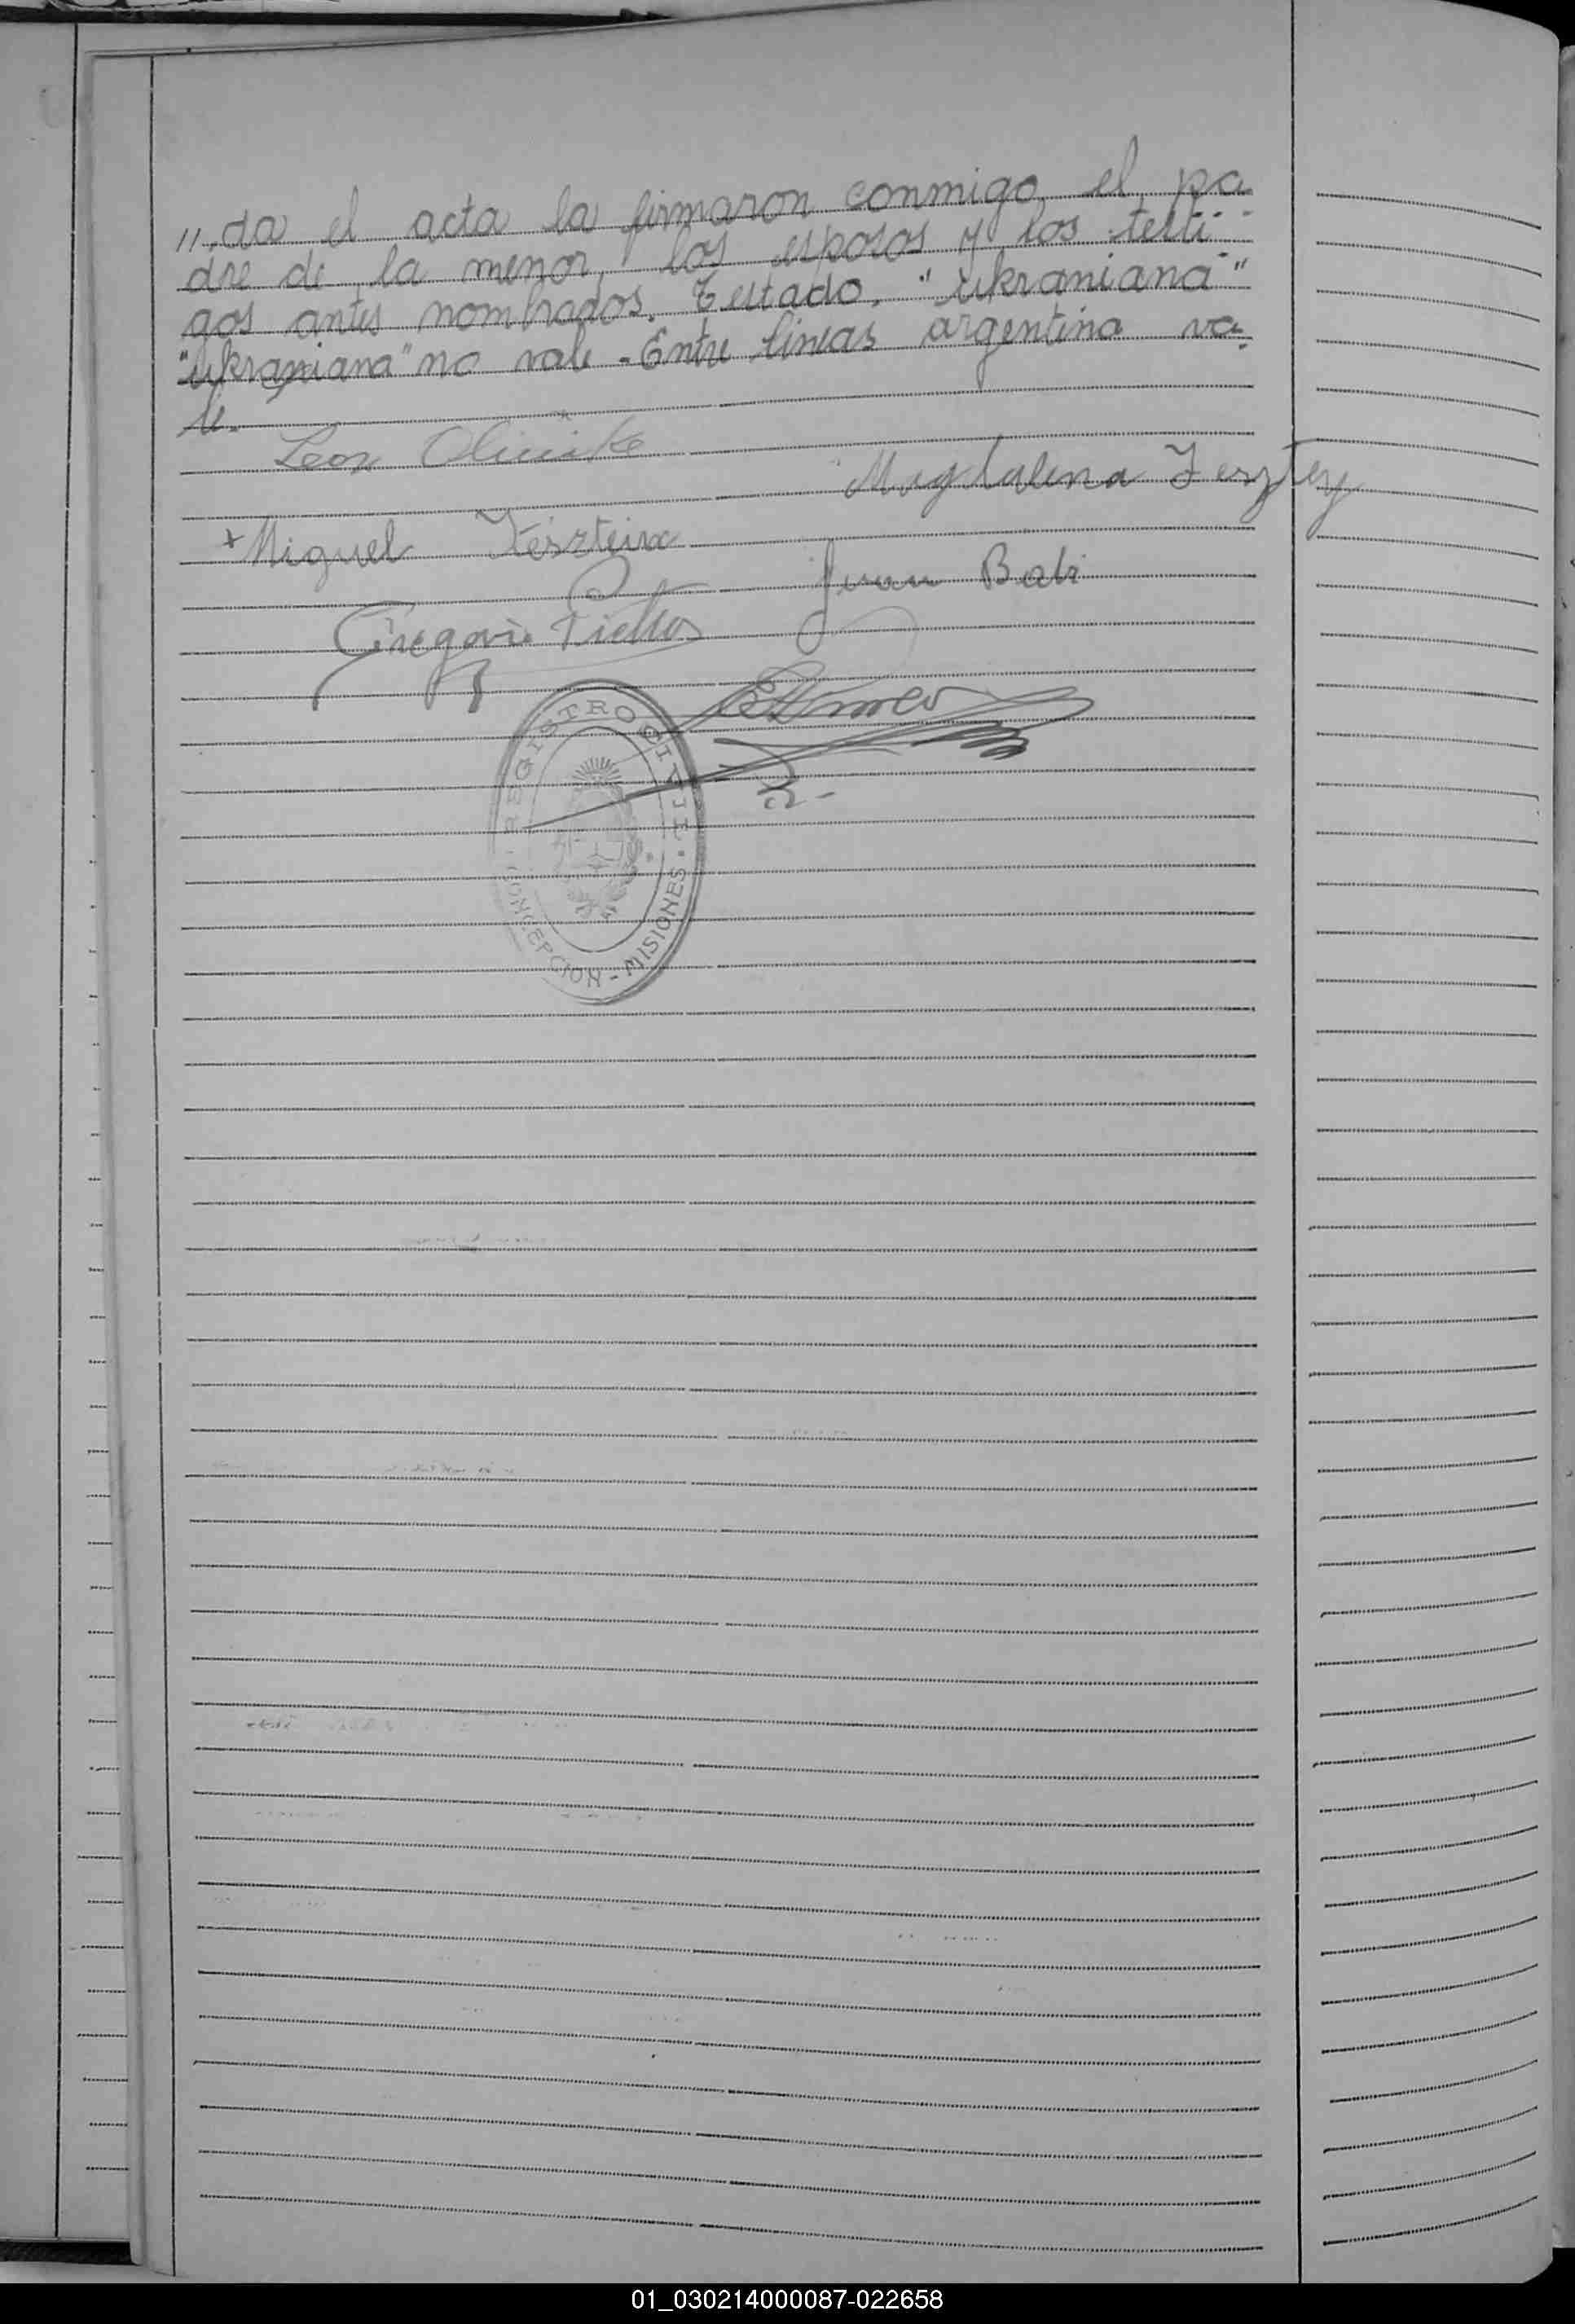 ,,da el acta la firmaron conmigo el pa
dre de la menor, los esposos y los testi-
gos antes nombrados. Testado, "Ukraniana"
"Ukraniana" no vale - Entre lineas argentina va-
le.
Leon
Magdalena
Miguel
Juan Babi
Gregorio
REGISTRO CIVIL
CONCEPCION - MISIONES
01_030214000087-022658